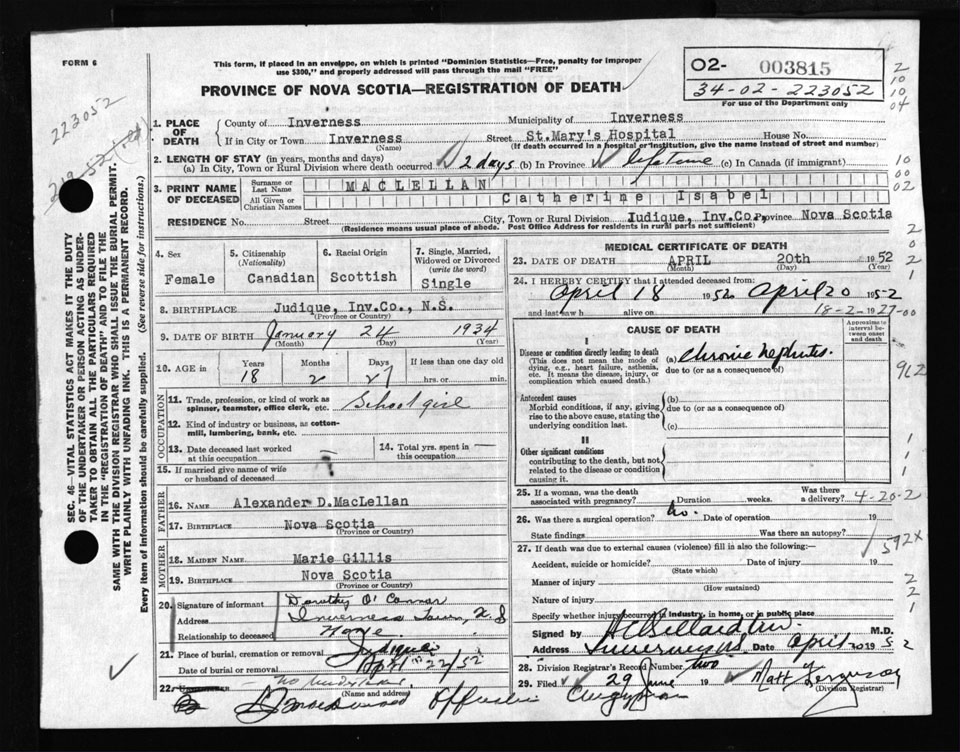 FORM 6
This form, if placed in an envelope, on which is printed "Dominion Statistics—Free, penalty for improper
use $300," and properly addressed will pass through the mail "FREE"
PROVINCE OF NOVA SCOTIA—REGISTRATION OF DEATH
02- 003815
34-02-223052
For use of the Department only
223052
SEC. 46—VITAL STATISTICS ACT MAKES IT THE DUTY
OF THE UNDERTAKER OR PERSON ACTING AS UNDER-
TAKER TO OBTAIN ALL THE PARTICULARS REQUIRED
IN THE "REGISTRATION OF DEATH" AND TO FILE THE
SAME WITH THE DIVISION REGISTRAR WHO SHALL ISSUE THE BURIAL PERMIT.
WRITE PLAINLY WITH UNFADING INK. THIS IS A PERMANENT RECORD.
Every item of information should be carefully supplied. (See reverse side for instructions.)
1. PLACE OF DEATH
County of Inverness Municipality of Inverness
If in City or Town Inverness Street St.Mary's Hospital House No.
(Name) (If death occurred in a hospital or institution, give the name instead of street and number)
2. LENGTH OF STAY (in years, months and days)
(a) In City, Town or Rural Division where death occurred 2 days (b) In Province lifetime (c) In Canada (if immigrant)
3. PRINT NAME OF DECEASED
Surname or Last Name MACLELLAN
All Given or Christian Names Catherine Isabel
RESIDENCE No. Street City, Town or Rural Division Judique, Inv.Co. Province Nova Scotia
(Residence means usual place of abode. Post Office Address for residents in rural parts not sufficient)
4. Sex
Female
5. Citizenship (Nationality)
Canadian
6. Racial Origin
Scottish
7. Single, Married, Widowed or Divorced (write the word)
Single
8. BIRTHPLACE Judique, Inv.Co., N.S.
(Province or Country)
9. DATE OF BIRTH January 24 1934
(Month) (Day) (Year)
10. AGE IN Years Months Days If less than one day old
18 2 27 hrs. or min.
OCCUPATION
11. Trade, profession, or kind of work as spinner, teamster, office clerk, etc. School girl
12. Kind of industry or business, as cotton-mill, lumbering, bank, etc.
13. Date deceased last worked at this occupation —
14. Total yrs. spent in this occupation —
15. If married give name of wife or husband of deceased
FATHER
16. NAME Alexander D.MacLellan
17. BIRTHPLACE Nova Scotia
(Province or Country)
MOTHER
18. MAIDEN NAME Marie Gillis
19. BIRTHPLACE Nova Scotia
(Province or Country)
20. Signature of informant Dorothy O'Connor
Address Inverness Town, N S
Relationship to deceased None
21. Place of burial, cremation or removal Judique
Date of burial or removal April 22/52
22. no undertaker
(Name and address)
Officiating Clergyman
MEDICAL CERTIFICATE OF DEATH
23. DATE OF DEATH APRIL 20th 1952
(Month) (Day) (Year)
24. I HEREBY CERTIFY that I attended deceased from:
April 18 1952 April 20 1952
and last saw h alive on 18-2-27-00
CAUSE OF DEATH
Approximate interval between onset and death
I
Disease or condition directly leading to death
(This does not mean the mode of dying, e.g., heart failure, asthenia, etc. It means the disease, injury, or complication which caused death.)
(a) Chronic nephritis.
due to (or as a consequence of)
962
Antecedent causes
Morbid conditions, if any, giving rise to the above cause, stating the underlying condition last.
(b)
due to (or as a consequence of)
(c)
II
Other significant conditions
contributing to the death, but not related to the disease or condition causing it.
25. If a woman, was the death associated with pregnancy? Duration weeks. Was there a delivery? 4-20-2
26. Was there a surgical operation? no. Date of operation 19
State findings Was there an autopsy?
592X
27. If death was due to external causes (violence) fill in also the following:—
Accident, suicide or homicide? Date of injury 19
(State which)
Manner of injury
(How sustained)
Nature of injury
Specify whether injury occurred in industry, in home, or in public place
Signed by M.D.
Address Inverness NS Date April 20 1952
28. Division Registrar's Record Number two
29. Filed 29 June 19 Matt Ferguson
(Division Registrar)